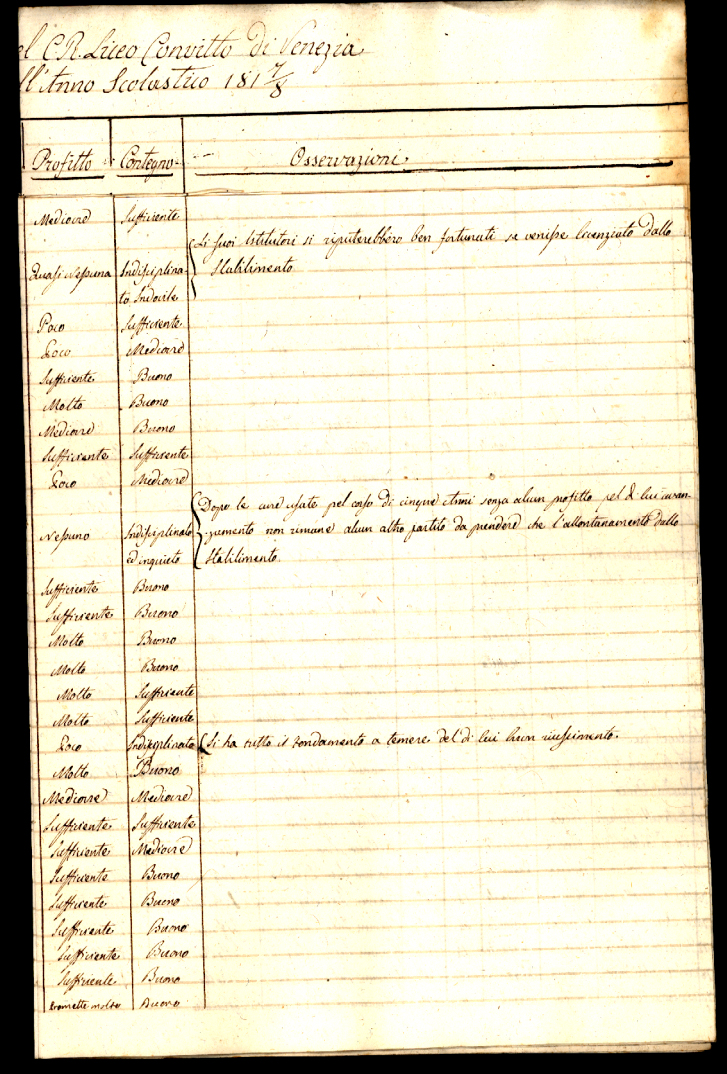 el C. R. Liceo Convitto di Venezia
ll'Anno Scolastico 181 7/8
Profitto Contegno Osservazioni
Mediocre Sufficiente
Li suoi Istitutori si riputerebbero ben fortunati se venisse licenziato dallo
Quasi Nessuna Indisciplina- Stabilimento
to Indocile
Poco Sufficiente
Poco Mediocre
Sufficiente Buono
Molto Buono
Mediocre Buono
Sufficiente Sufficiente
Poco Mediocre
Dopo le cure usate pel corso di cinque Anni senza alcun profitto pel di lui avan-
Nessuno Indisciplinato zamento non rimane alcun altro partito da prendere che l'allontanamento dallo
ed inquieto Stabilimento.
Sufficiente Buono
Sufficiente Buono
Molto Buono
Molto Buono
Molto Sufficiente
Molto Sufficiente
Poco Indisciplinato Si ha tutto il fondamento a temere del di lui buon riuscimento.
Molto Buono
Mediocre Mediocre
Sufficiente Sufficiente
Sufficiente Mediocre
Sufficiente Buono
Sufficiente Buono
Sufficiente Buono
Sufficiente Buono
Sufficiente Buono
Promette molto Buono